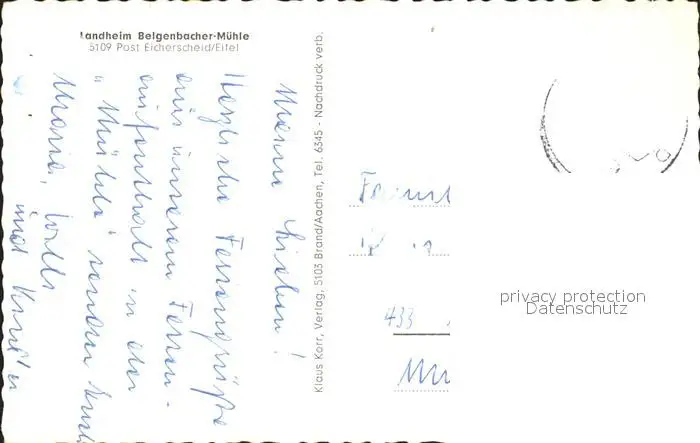 Landheim Belgenbacher-Mühle
5109 Post Eicherscheid/Eifel
Meine Lieben!
Herzliche Feriengrüße
aus unserem Ferien-
aufenthalt in der
"Mühle" senden Euch
Maria, Willi
und Kinder
Klaus Korr, Verlag, 5103 Brand/Aachen, Tel. 6345 - Nachdruck verb.
433
privacy protection
Datenschutz